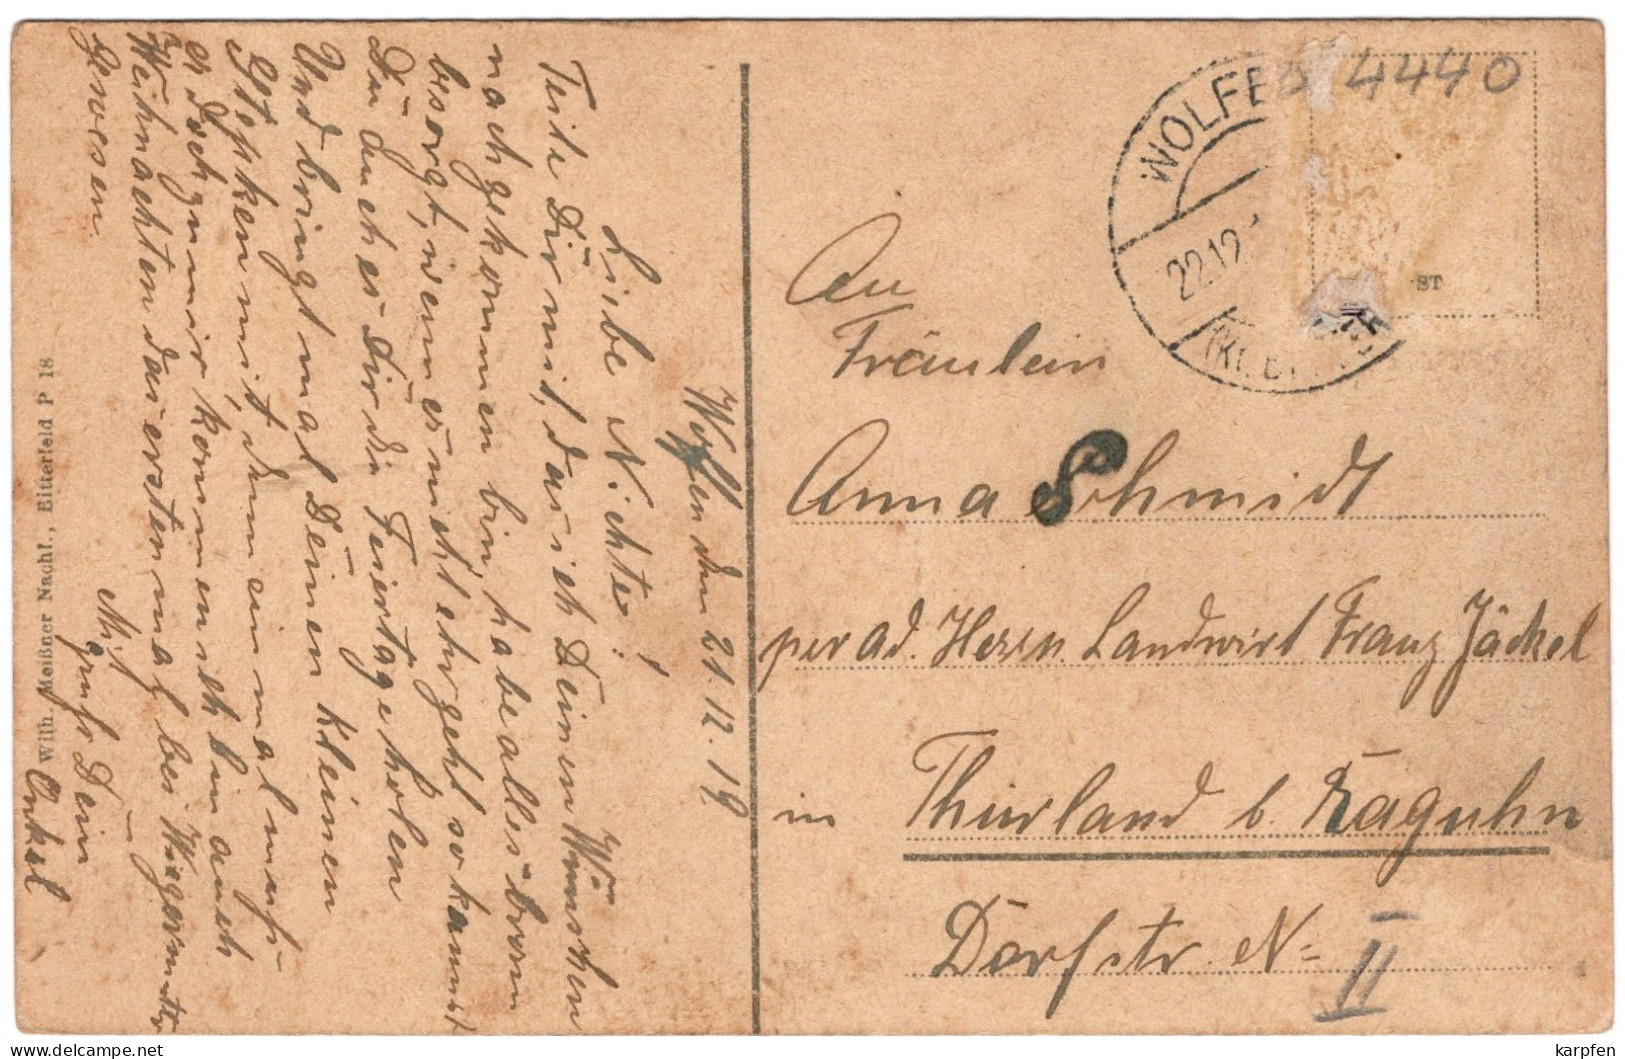 Wolfen den 21.12.19
Liebe Nichte!
Teile Dir mit, das ich Deinen Wünschen
nachgekommen bin, habe alles
besorgt, wenn es nicht ehr geht so kannst
Du auch es dir die Feiertage holen
Und bringt mal Deinen kleinen
mit, denn einmal muß
er doch zu mir kommen ich bin auch
Weihnachten das erstemal bei
gewesen.
Mit gruß Dein
Onkel
Wilh. Meißner Nachf., Bitterfeld P 18
WOLFE
22.12.
4440
ST
An
Fräulein
Anna Schmidt
per ad. Herrn Landwirt Franz Jäckel
in Thurland b. Raguhn
Dorfstr. No
II
karpfen